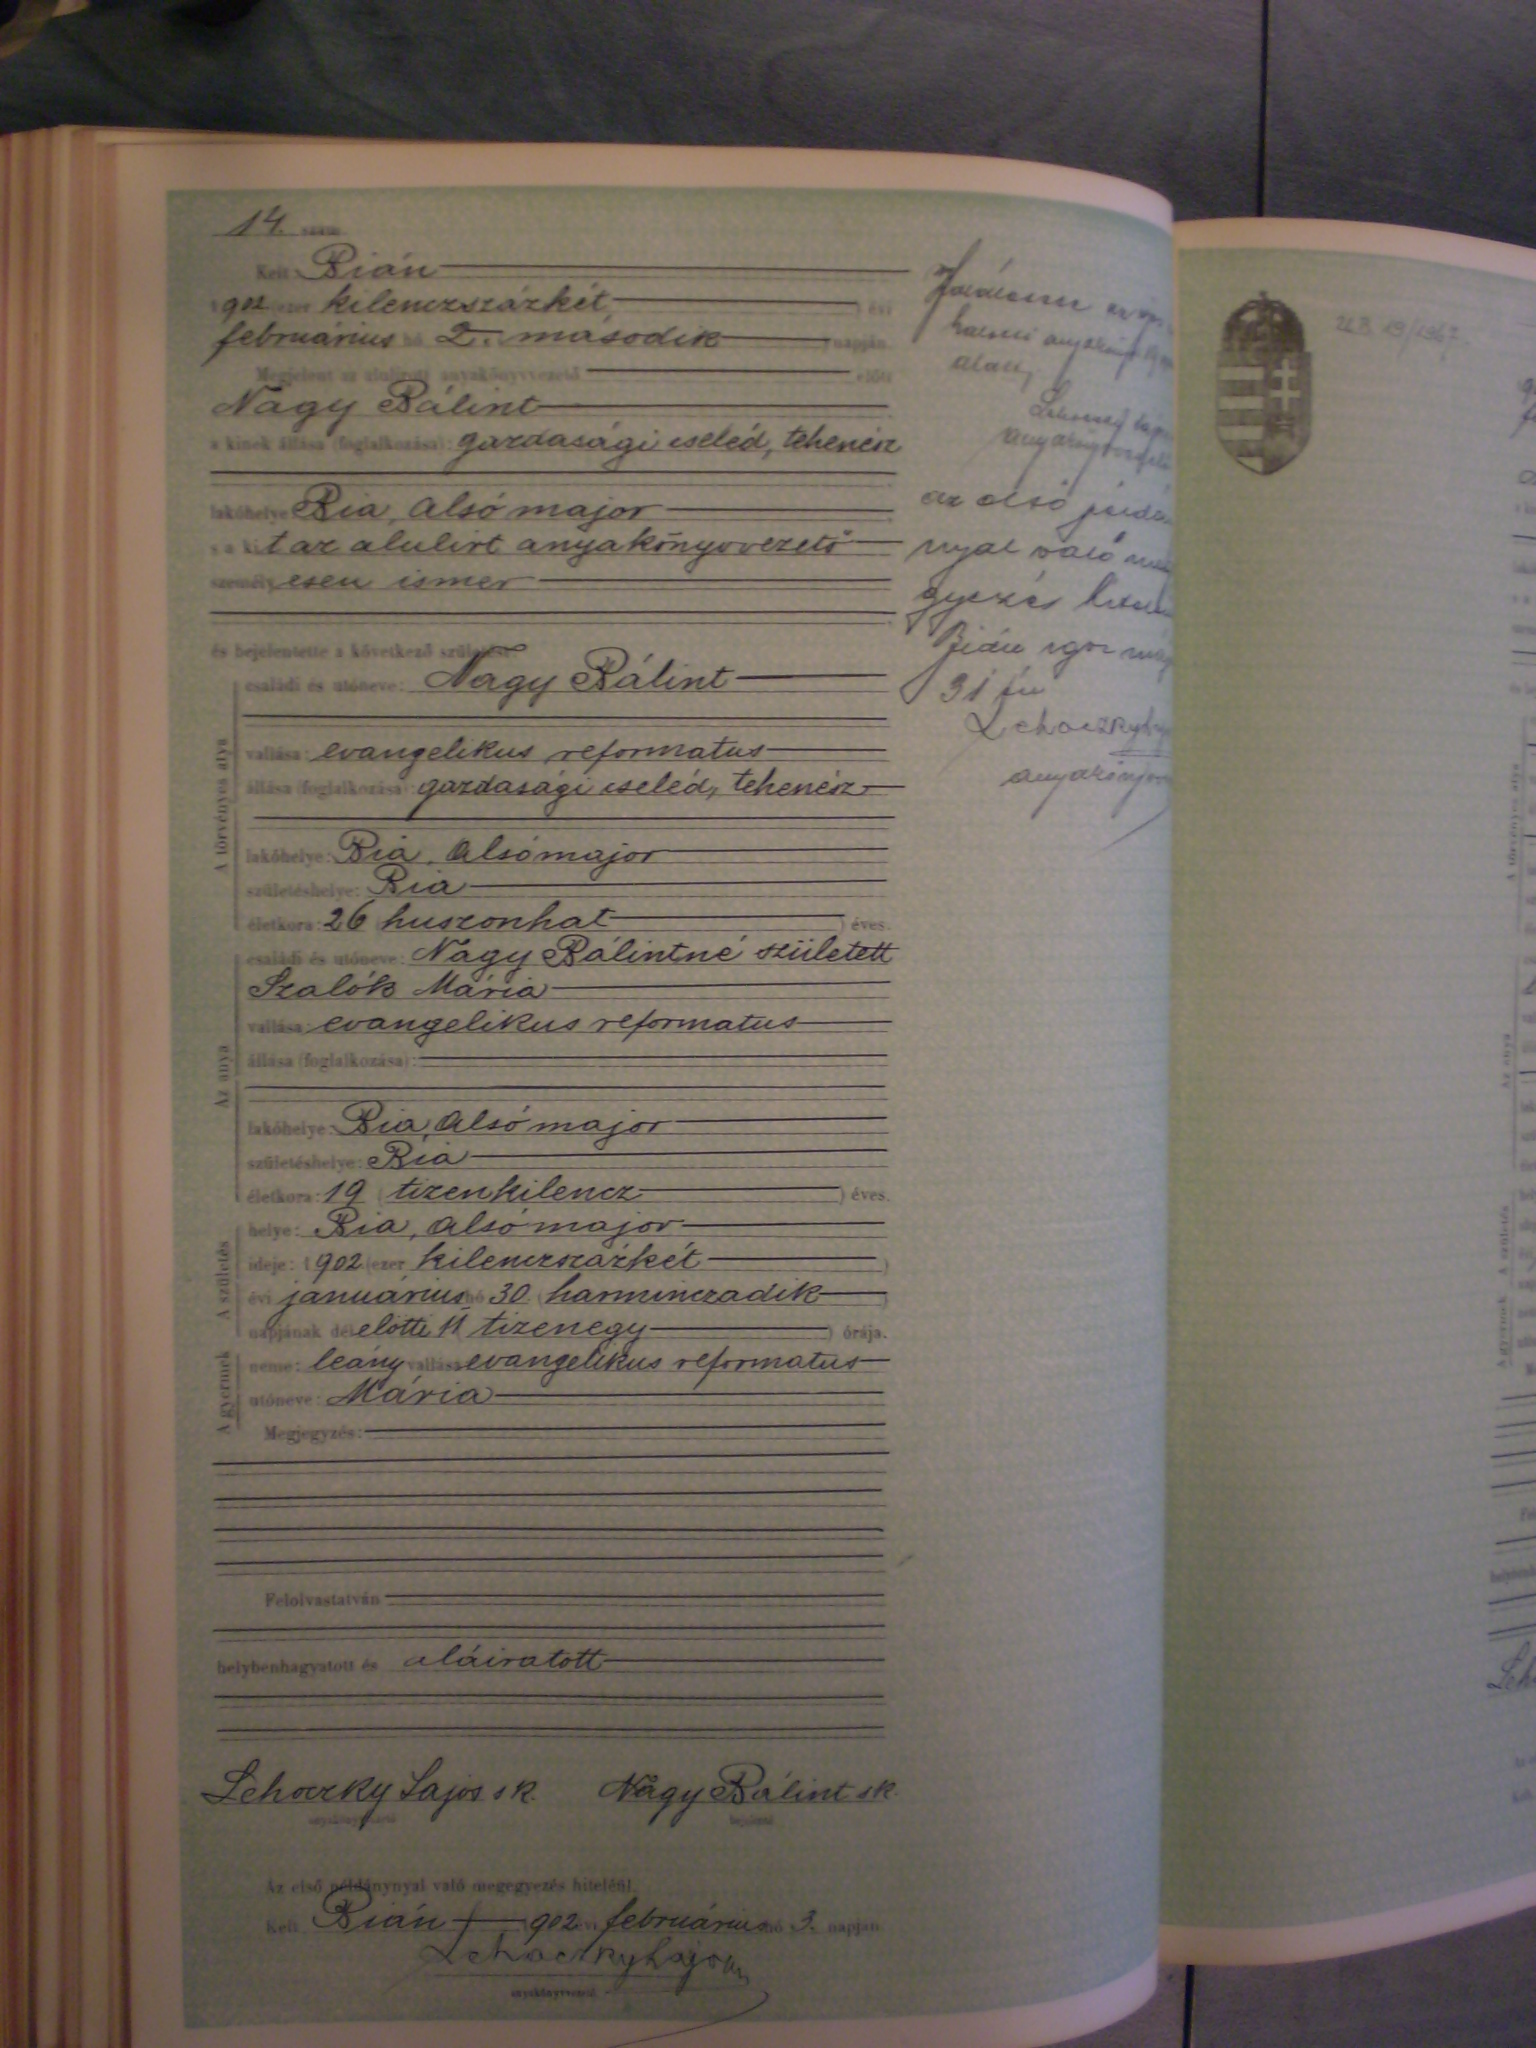 14. szám
Kelt: Bián
1902 (ezer kilenczszázkét ) évi
februárius hó 2. második ) napján
Megjelent az alulirott anyakönyvvezető előtt
Nagy Bálint
a kinek állása (foglalkozása): gazdasági cseléd, tehenész
lakóhelye Bia, Alsómajor
s a kit az alulirt anyakönyvvezető
személyesen ismer
és bejelentette a következő születést:
A törvényes atya
családi és utóneve: Nagy Bálint
vallása: evangelikus reformatus
állása (foglalkozása): gazdasági cseléd, tehenész
lakóhelye: Bia, Alsómajor
születéshelye: Bia
életkora: 26 (huszonhat ) éves.
Az anya
családi és utóneve: Nagy Bálintné született
Szalók Mária
vallása: evangelikus reformatus
állása (foglalkozása):
lakóhelye: Bia, Alsómajor
születéshelye: Bia
életkora: 19 (tizenkilencz ) éves.
A születés
helye: Bia, Alsómajor
ideje: 1902 (ezer kilenczszázkét )
évi januárius hó 30. (harminczadik )
napjának délelőtti 11 (tizenegy ) órája.
A gyermek
neme: leány vallása: evangelikus reformatus
utóneve: Mária
Megjegyzés:
Felolvastatván
helybenhagyatott és aláiratott
Lehoczky Lajos sk. Nagy Bálint sk.
anyakönyvvezető bejelentő
Az első példánynyal való megegyezés hiteléül.
Kelt Bián 1902 évi februárius hó 3. napján
Lehoczky Lajos
anyakönyvvezető
az első
való
Bián
31 én
Lehoczky